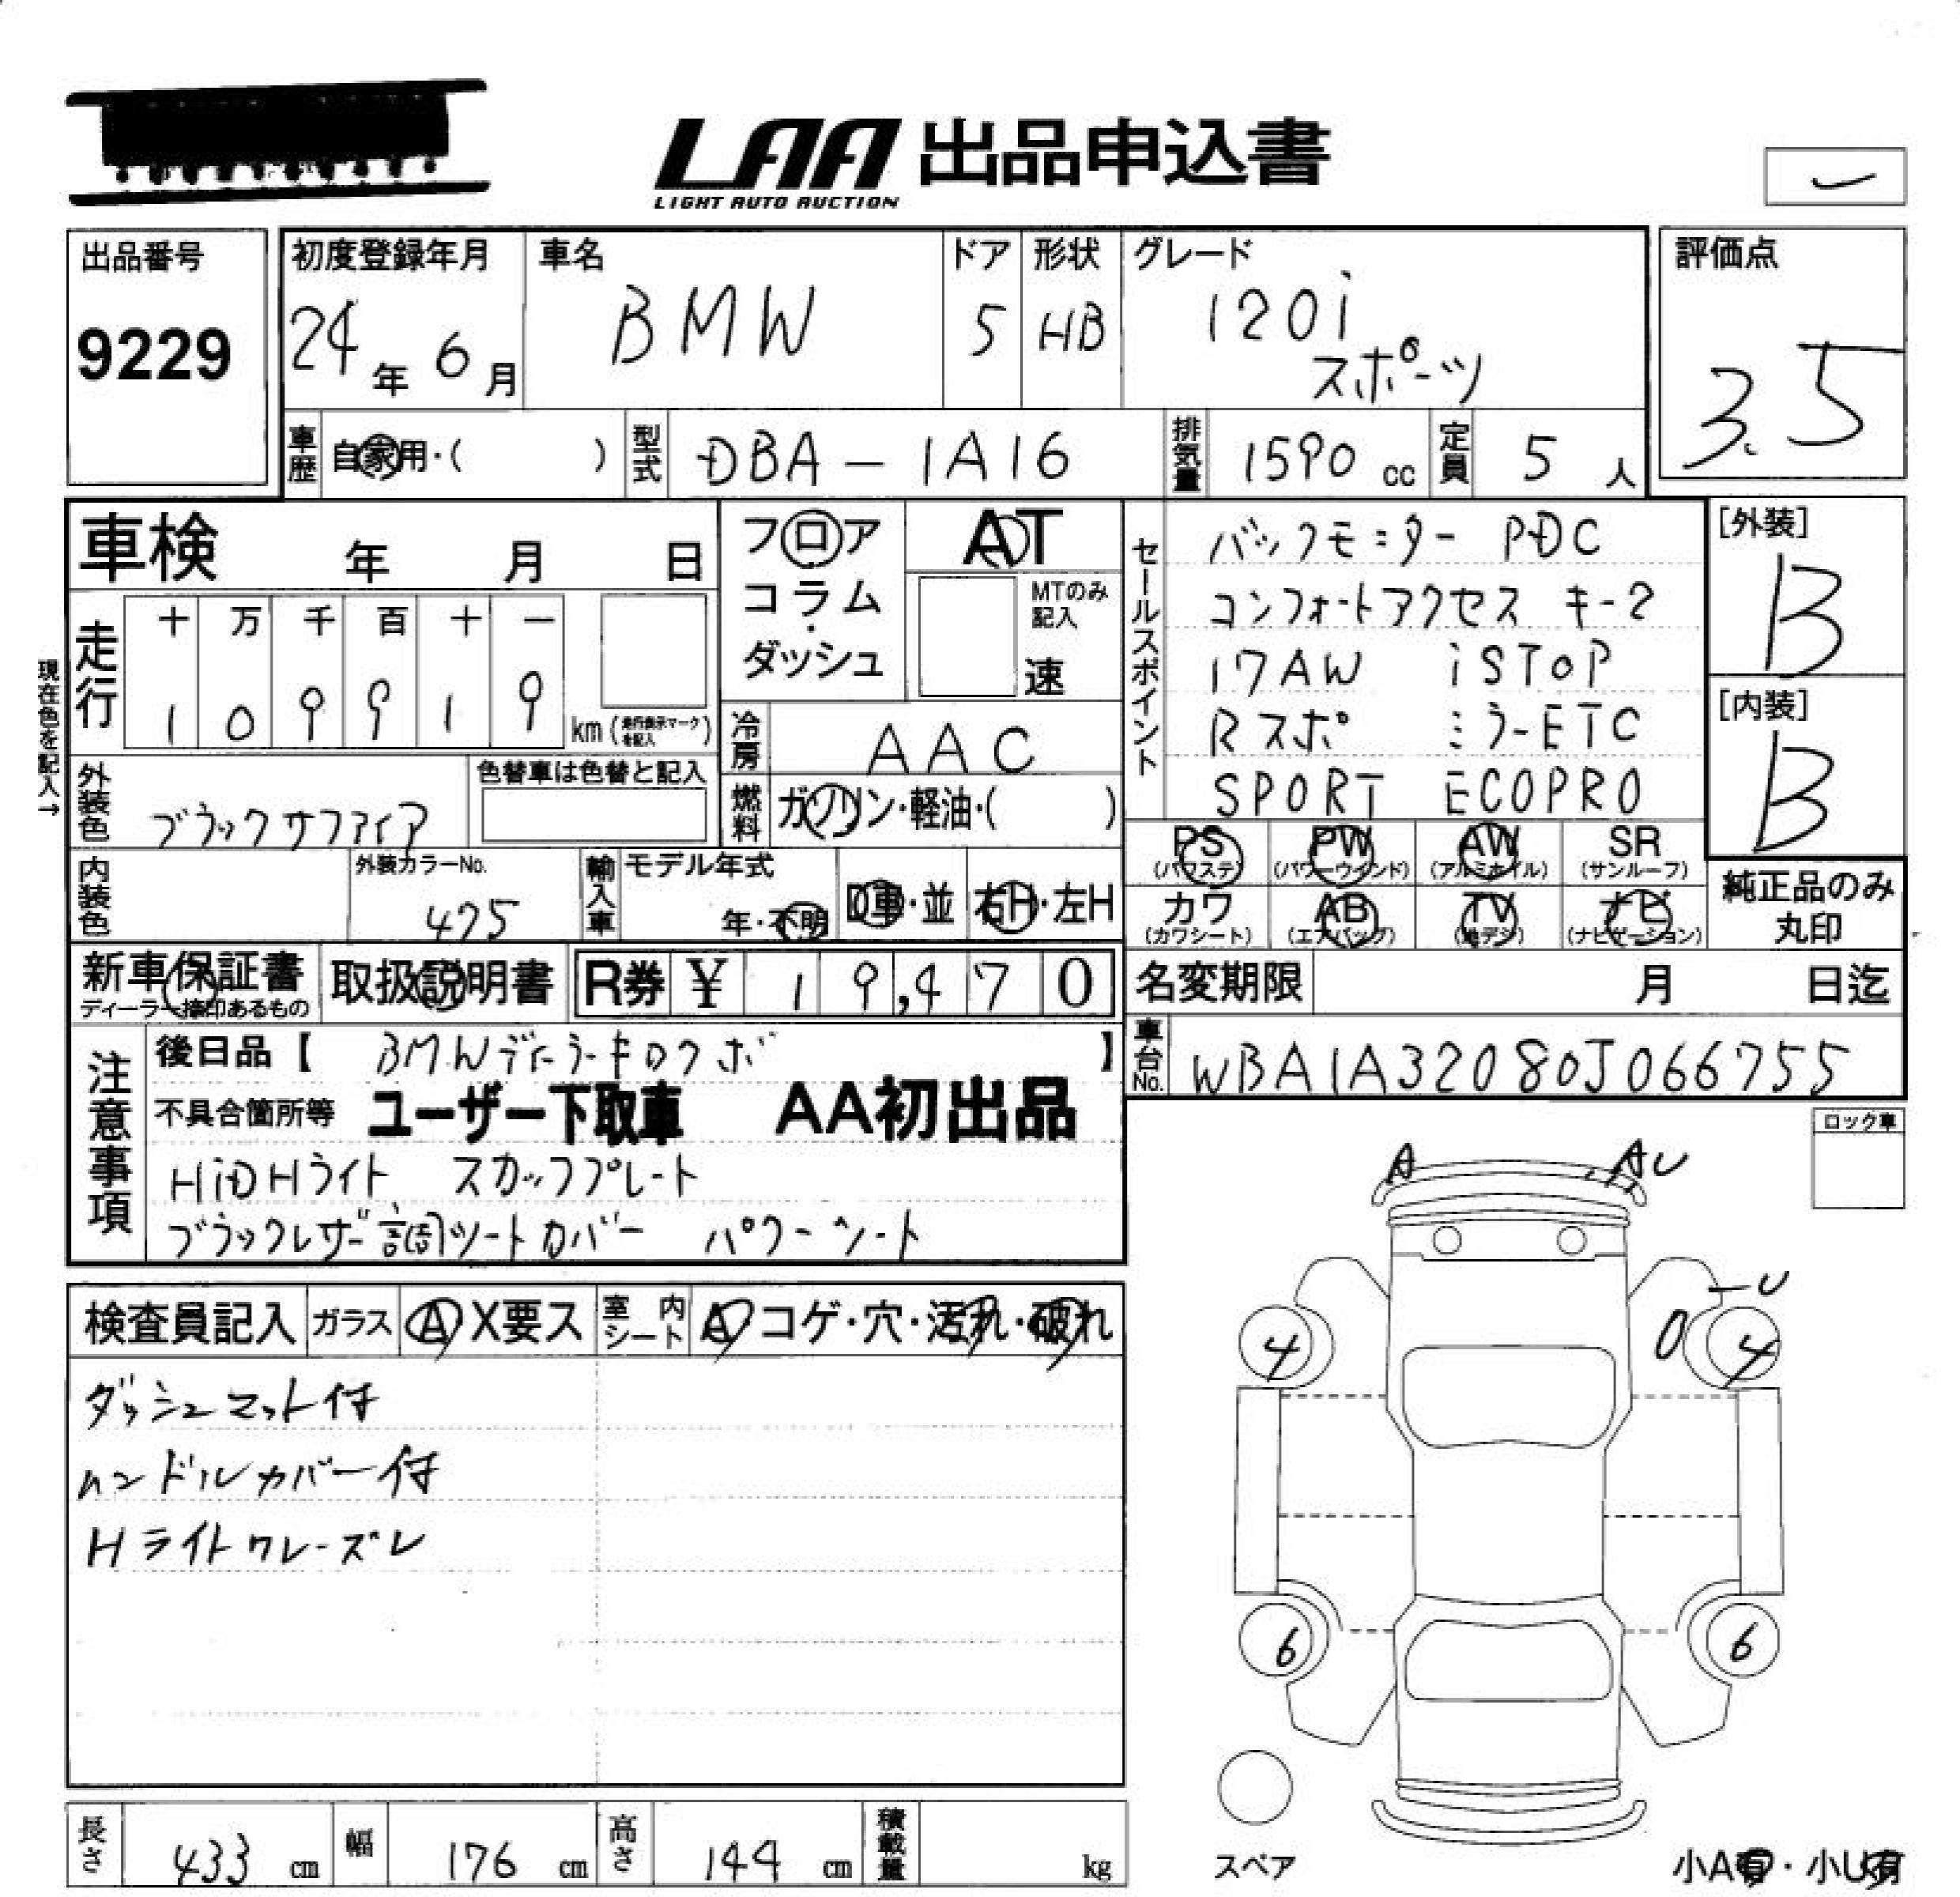 LAA 出品申込書
LIGHT AUTO AUCTION
出品番号
9229
初度登録年月
24年 6月
車名
BMW
ドア
5
形状
HB
グレード
120i
スポーツ
評価点
3.5
車歴 自家用・( )
型式 DBA-1A16
排気量 1590 cc
定員 5 人
車検 年 月 日
フロア
コラム
・
ダッシュ
AT
MTのみ記入
速
現在色を記入→
走行
十 万 千 百 十 一
1 0 9 9 1 9
km (走行表示マークを記入)
冷房 AAC
燃料 ガソリン・軽油・( )
外装色 ブラックサファイア
色替車は色替と記入
内装色
外装カラーNo.
475
輸入車
モデル年式
年・不明
D車・並
右H・左H
セールスポイント
バックモニター PDC
コンフォートアクセス キー2
17AW iSToP
Rスポ ミラーETC
SPORT ECOPRO
[外装]
B
[内装]
B
PS (パワステ)
PW (パワーウインド)
AW (アルミホイル)
SR (サンルーフ)
カワ (カワシート)
AB (エアバッグ)
TV (地デジ)
ナビ (ナビゲーション)
純正品のみ
丸印
新車保証書
ディーラー捺印あるもの
取扱説明書
R券 ¥ 19,470
名変期限 月 日迄
車台No. WBA1A32080J066755
注意事項
後日品【 BMWデーラーキロクボ 】
不具合箇所等 ユーザー下取車 AA初出品
HiDHライト スカッフプレート
ブラックレザー調シートカバー パワーシート
ロック車
検査員記入
ガラス A X要ス
室内シート A コゲ・穴・汚れ・破れ
ダッシュマット付
ハンドルカバー付
Hライトクレーズレ
A
AU
U
4
4
6
6
スペア
小A有・小U有
長さ 433 cm
幅 176 cm
高さ 144 cm
積載量 kg